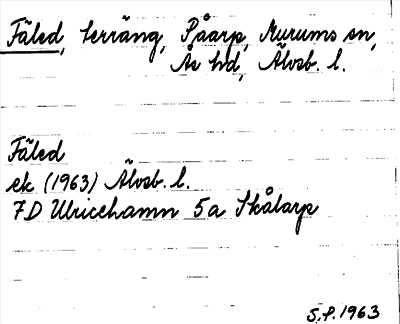 Fäled, terräng, Påarp, Murums sn,
Ås hd, Älvsb. l.
Fäled
ek (1963) Älvsb. l.
7D Ulricehamn 5a Skålarp
S.P. 1963